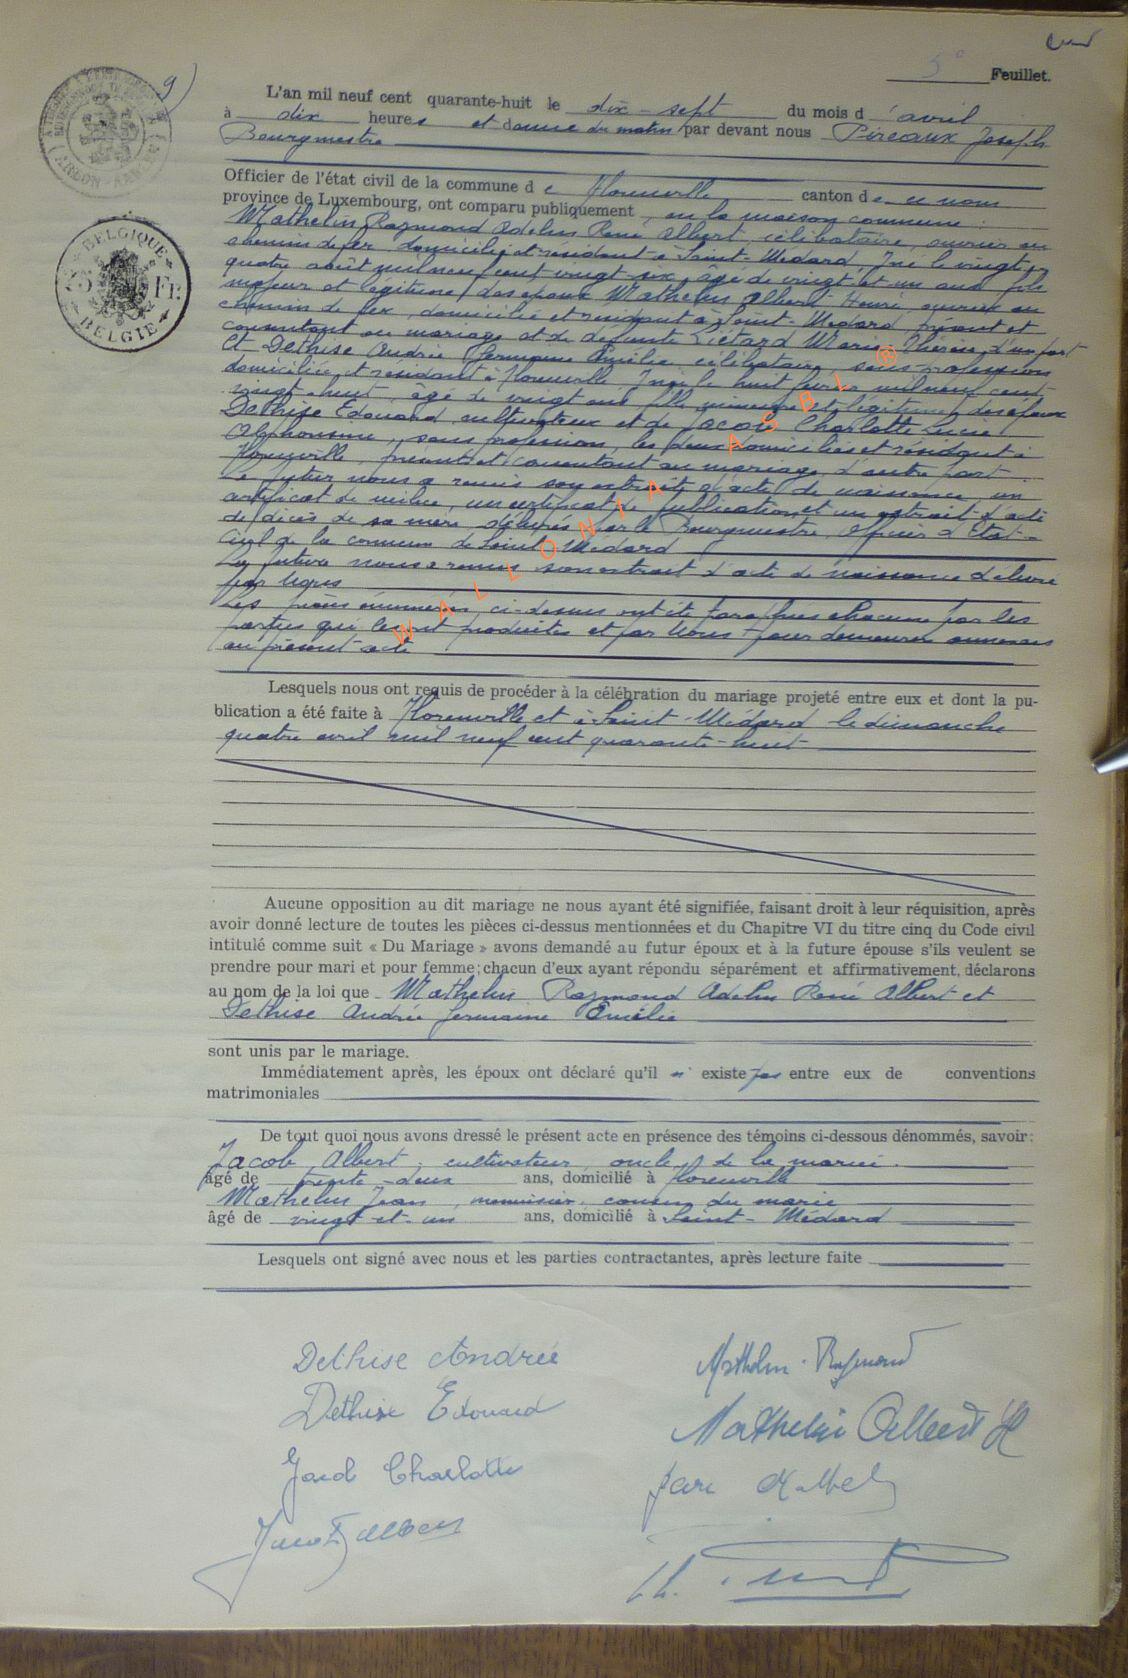 9)
5e Feuillet.
L'an mil neuf cent quarante-huit le dix-sept du mois d'avril
à dix heures et demie du matin par devant nous Pireaux Joseph
Bourgmestre
Officier de l'état civil de la commune de Florenville canton de ce nom
province de Luxembourg, ont comparu publiquement, en la maison commune :
Mathelin Raymond Adelin René Albert, célibataire, ouvrier au
chemin de fer, domicilié et résidant à Saint-Médard, né le vingt
quatre août mil neuf cent vingt-six, âgé de vingt et un ans, fils
majeur et légitime des époux Mathelin Albert Henri, ouvrier au
chemin de fer, domicilié et résidant à Saint-Médard, présent et
consentant au mariage et de défunte Liétard Marie Thérèse, d'une part
Et Dethise Andrée Germaine Emélie célibataire, sans profession
domiciliée et résidant à Florenville, née le huit février mil neuf cent
vingt-huit, âgée de vingt ans, fille mineure et légitime des époux
Dethise Edouard, cultivateur et de Jacob Charlotte Lucie
Alphonsine, sans profession, les deux domiciliés et résidant à
Florenville, présents et consentant au mariage, d'autre part.
Le futur nous a remis son extrait d'acte de naissance, un
certificat de milice, un certificat de publication et un extrait d'acte
de décès de sa mère délivrés par le Bourgmestre, Officier d'Etat-
Civil de la commune de Saint-Médard
La future nous a remis son extrait d'acte de naissance délivré
par Nous
Les pièces énumérées ci-dessus ont été paraphées chacune par les
parties qui les ont produites et par Nous pour demeurer annexées
au présent acte
WALLONIA ASBL ®
Lesquels nous ont requis de procéder à la célébration du mariage projeté entre eux et dont la pu-
blication a été faite à Florenville et à Saint-Médard le dimanche
quatre avril mil neuf cent quarante-huit
Aucune opposition au dit mariage ne nous ayant été signifiée, faisant droit à leur réquisition, après
avoir donné lecture de toutes les pièces ci-dessus mentionnées et du Chapitre VI du titre cinq du Code civil
intitulé comme suit « Du Mariage » avons demandé au futur époux et à la future épouse s'ils veulent se
prendre pour mari et pour femme; chacun d'eux ayant répondu séparément et affirmativement, déclarons
au nom de la loi que Mathelin Raymond Adelin René Albert et
Dethise Andrée Germaine Emélie
sont unis par le mariage.
Immédiatement après, les époux ont déclaré qu'il n'existe pas entre eux de conventions
matrimoniales
De tout quoi nous avons dressé le présent acte en présence des témoins ci-dessous dénommés, savoir:
Jacob Albert, cultivateur, oncle de la mariée.
âgé de trente-deux ans, domicilié à Florenville
Mathelin Jean, menuisier, cousin du marié
âgé de vingt-et-un ans, domicilié à Saint-Médard
Lesquels ont signé avec nous et les parties contractantes, après lecture faite
Dethise Andrée
Mathelin Raymond
Dethise Edouard
Mathelin Albert H
Jacob Charlotte
Jacob Albert
BELGIQUE
5 Fr.
BELGIË